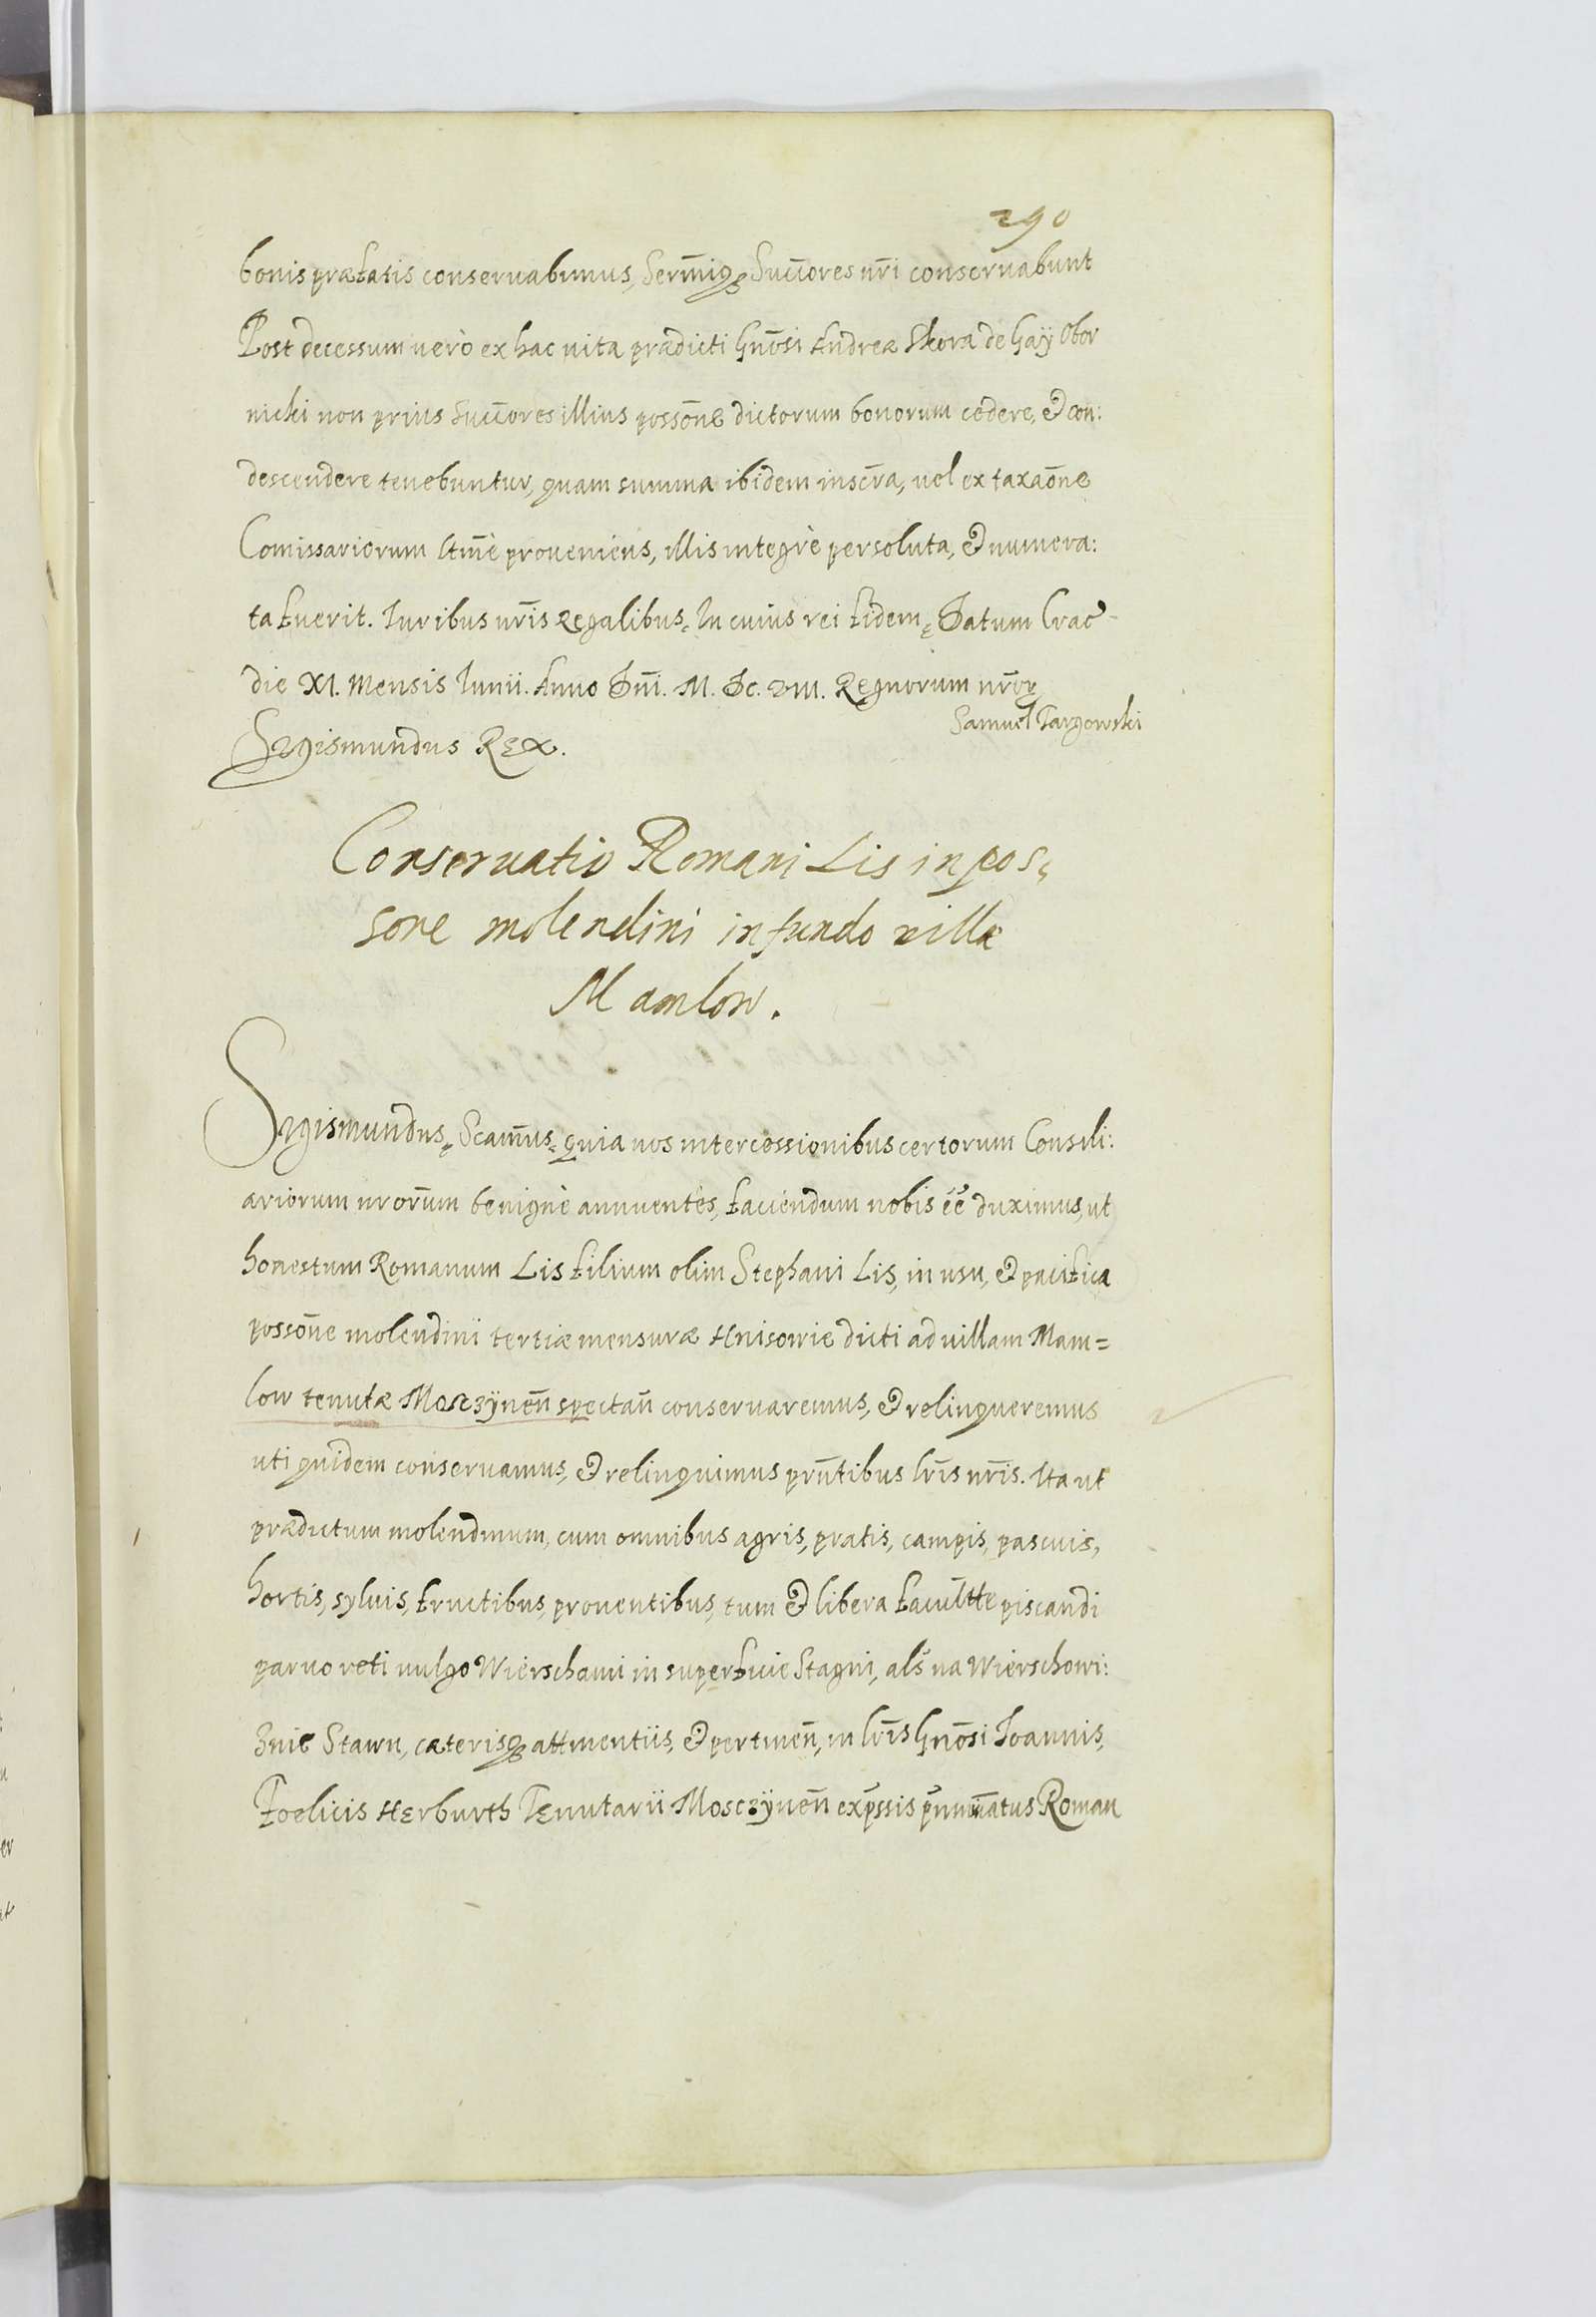 290
bonis præfatis conservabimus, Serm̄iq; Succores nr̄i conservabunt
Post decessum verò ex hac vita prædicti Gnōsi Andreæ Skora de Gaÿ Obor
nicki non prius Succores illius possōne dictorum bonorum cedere, et con:
descendere tenebuntur, quam summa ibidem inscr̄a, vel ex taxaōne
Comissariorum ltm̄è proveniens, illis integrè persoluta, et numera:
ta fuerit. Iuribus nr̄is Regalibus. In cuius rei fidem. Datum Crac
die XI. Mensis Iunii. Anno Dn̄i. M. Dc. VIII. Regnorum nr̄or
Samuel Targowski
Sigismundus Rex.
Conservatio Romani Lis in pos,
sone molendini in fundo villæ
Mamlow.
Sigismundus, Scam̄us, quia nos intercessionibus certorum Consili:
ariorum nrorum benignè annuentes, faciendum nobis ēē duximus, ut
honestum Romanum Lis filium olim Stephani Lis, in usu, et pacifica
possōne molendini tertiæ mensuræ Hnisowie dicti ad villam Mam=
low tenutæ Mosczÿnen̄ spectan̄ conservaremus, et relinqueremus
uti quidem conservamus, et relinquimus prn̄tibus lr̄is nr̄is. Ita ut
prædictum molendinum, cum omnibus agris, pratis, campis, pascuis,
hortis, sylvis, fructibus, proventibus, tum et libera facultte piscandi
parvo reti vulgo Wierschami in superficie Stagni, als na Wierschowi:
znie Stawu, cæterisq; attinentiis, et pertinen̄, in lr̄is Gnōsi Ioannis,
Foelicis Herburth Tenutarii Mosczÿnen̄ exp̄ssis p̄nominatus Roman